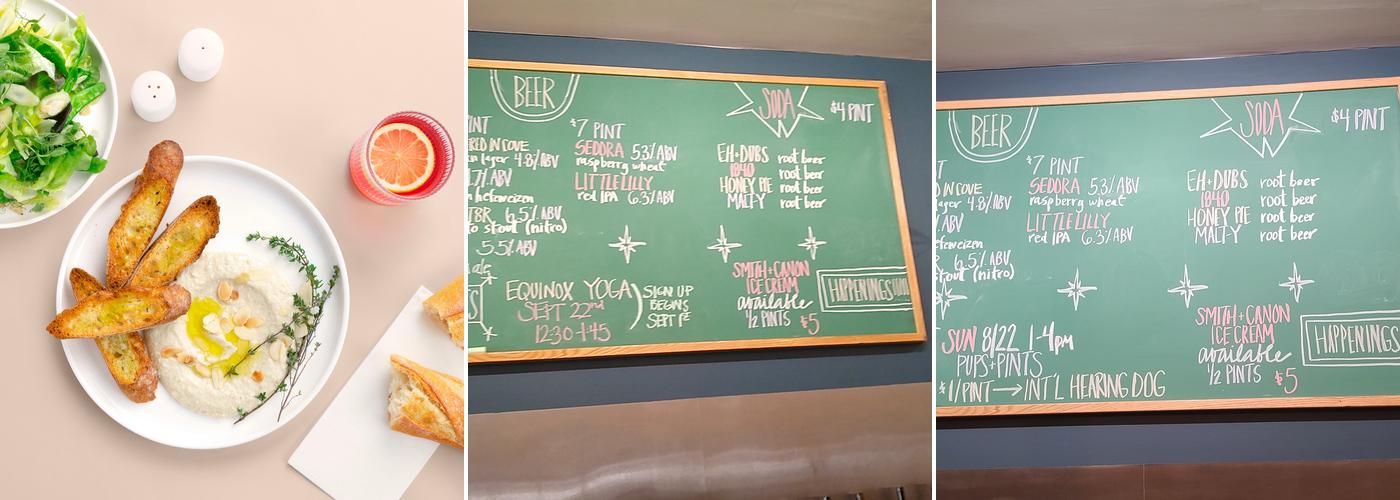 BEER
SODA
$4 PINT
INT
RED IN COVE
an lager 4.8% ABV
.1% ABV
hefeweizen
TBR 6.5% ABV
to stout (nitro)
5.5% ABV
ale
$7 PINT
SEDORA 5.3% ABV
raspberry wheat
LITTLE LILLY
red IPA 6.3% ABV
EH+DUBS root beer
1840 root beer
HONEY PIE root beer
MALT-Y root beer
EQUINOX YOGA
SEPT 22nd
12:30-1:45
SIGN UP
BEGINS
SEPT 1st
SMITH+CANON
ICE CREAM
available
1/2 PINTS $5
HAPPENINGS
BEER
SODA
$4 PINT
D IN COVE
lager 4.8% ABV
ABV
efeweizen
6.5% ABV
stout (nitro)
$7 PINT
SEDORA 5.3% ABV
raspberry wheat
LITTLE LILLY
red IPA 6.3% ABV
EH+DUBS root beer
1840 root beer
HONEY PIE root beer
MALT-Y root beer
SUN 8/22 1-4pm
PUPS+PINTS
$1/PINT→INT'L HEARING DOG
SMITH+CANON
ICE CREAM
available
1/2 PINTS $5
HAPPENINGS